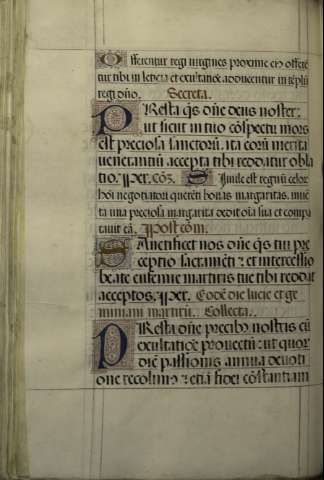 Offerentur regi uirgines proxime eiꝰ offerē
tur tibi in leticia et exultatiōe adducentur in tēplū
regi dño. Secreta.
PResta q̄s dñe deus noster:
ut sicut in tuo cōspectu mors
est preciosa sanctorū: ita eorū merita
uenerantiū accepta tibi reddatur obla
tio. Per. Cōᷤ. Simile est regnū celor
hōi negotiatori querēti bonas margaritas. inuē
ta una preciosa margarita dedit oīa sua et compa
rauit eā. Post cōm̄.
SAnctificet nos dñe q̄s tui per
ceptio sacramēti: et intercessio
beate eufemie martiris tue tibi reddat
acceptos. Per. Eodē die lucie et ge
miniani martirū. Collecta.
PResta dñe precibꝰ nostris cū
exultatiōe prouectū: ut quor
diē passionis annua deuoti
one recolimꝰ: etiā fidei cōstantiam